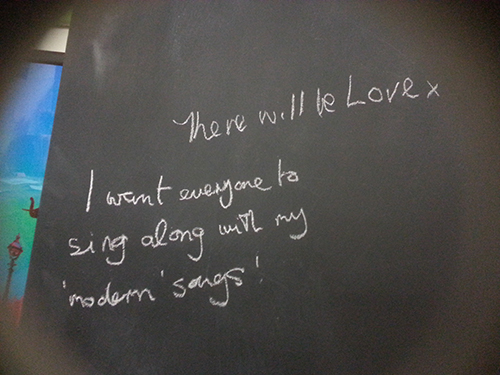 There will be Love x
I want everyone to
sing along with my
'modern' songs!